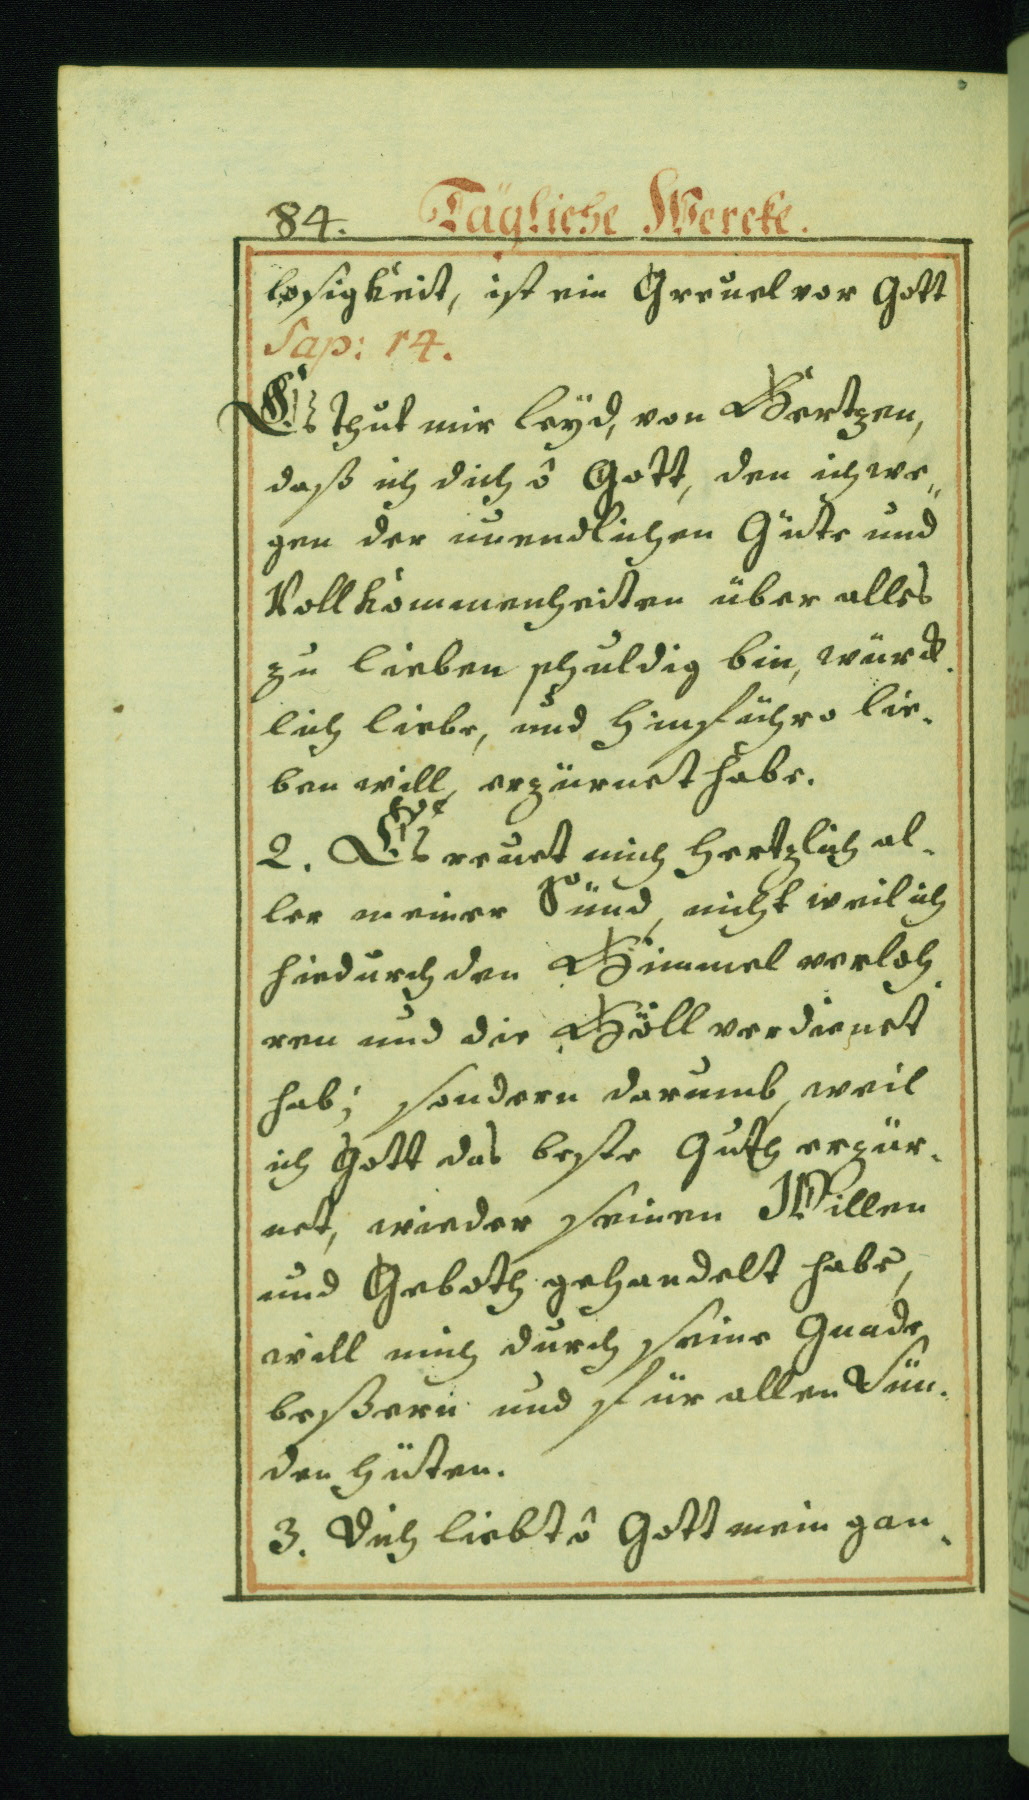 84. Tägliche Wercke.
losigkeit, ist ein Greuel vor Gott
Sap: 14.
Es thut mir leyd, von Hertzen,
daß ich dich ô Gott, den ich we„
gen der unendlichen Güte und
Vollkommenheiten über alles
zu lieben schuldig bin, würck-
lich liebe, und hinführo lie-
ben will, erzürnet habe.
2. Es reuet mich hertzlich al-
ler meiner Sünd, nicht weil ich
hiedurch den Himmel verloh-
ren und die Höll verdienet
hab; sondern darumb, weil
ich Gott das beste Guth erzür-
net, wieder seinen Willen
und Geboth gehandelt habe,
will mich durch seine Gnade
beßern und für allen Sün-
den hüten.
3. Dich liebt ô Gott mein gan-